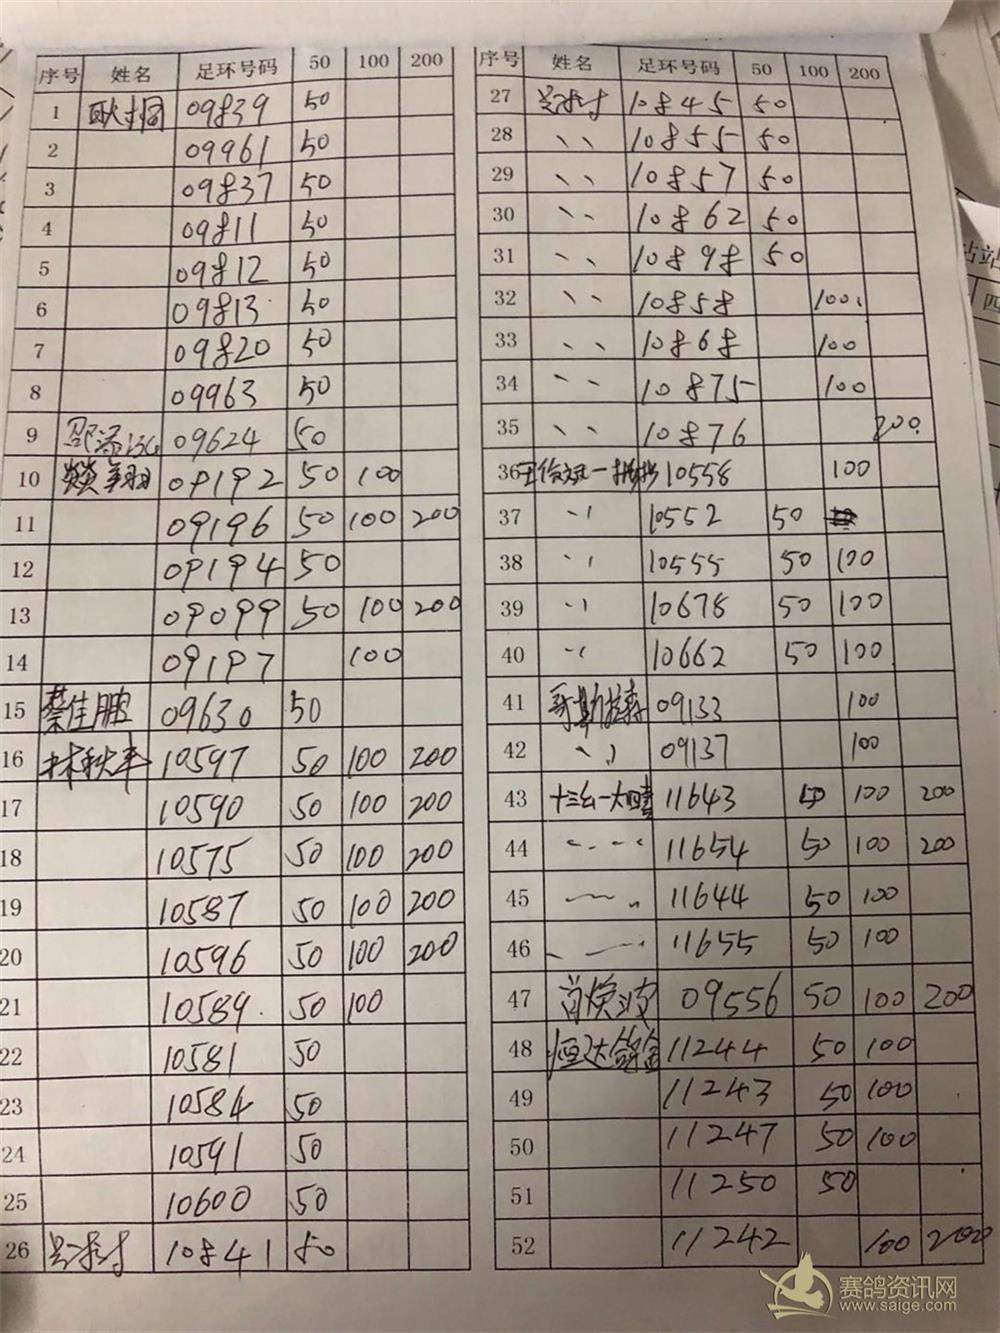 序号 姓名 足环号码 50 100 200
1 09839 50
2 09961 50
3 09837 50
4 09811 50
5 09812 50
6 09813 50
7 09820 50
8 09963 50
9 09624 50
10 翔 09192 50 100
11 09196 50 100 200
12 09194 50
13 09099 50 100 200
14 09197 100
15 蔡佳鹏 09630 50
16 林秋平 10597 50 100 200
17 10590 50 100 200
18 10575 50 100 200
19 10587 50 100 200
20 10596 50 100 200
21 10589 50 100
22 10581 50
23 10584 50
24 10591 50
25 10600 50
26 10841 50
序号 姓名 足环号码 50 100 200
27 10845 50
28 、、 10855 50
29 、、 10857 50
30 、、 10862 50
31 、、 10898 50
32 、、 10858 100
33 、、 10868 100
34 、、 10875 100
35 、、 10876 200
36 10558 100
37 10552 50
38 10555 50 100
39 10678 50 100
40 10662 50 100
41 哥斯拉森 09133 100
42 09137 100
43 11643 50 100 200
44 11654 50 100 200
45 11644 50 100
46 11655 50 100
47 09556 50 100 200
48 恒达鸽舍 11244 50 100
49 11243 50 100
50 11247 50 100
51 11250 50
52 11242 100 200
站站
四
赛鸽资讯网
www.saige.com